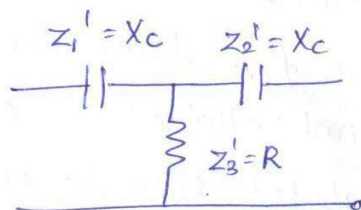 Z₁' = Xc Z₂' = Xc
Z₃' = R